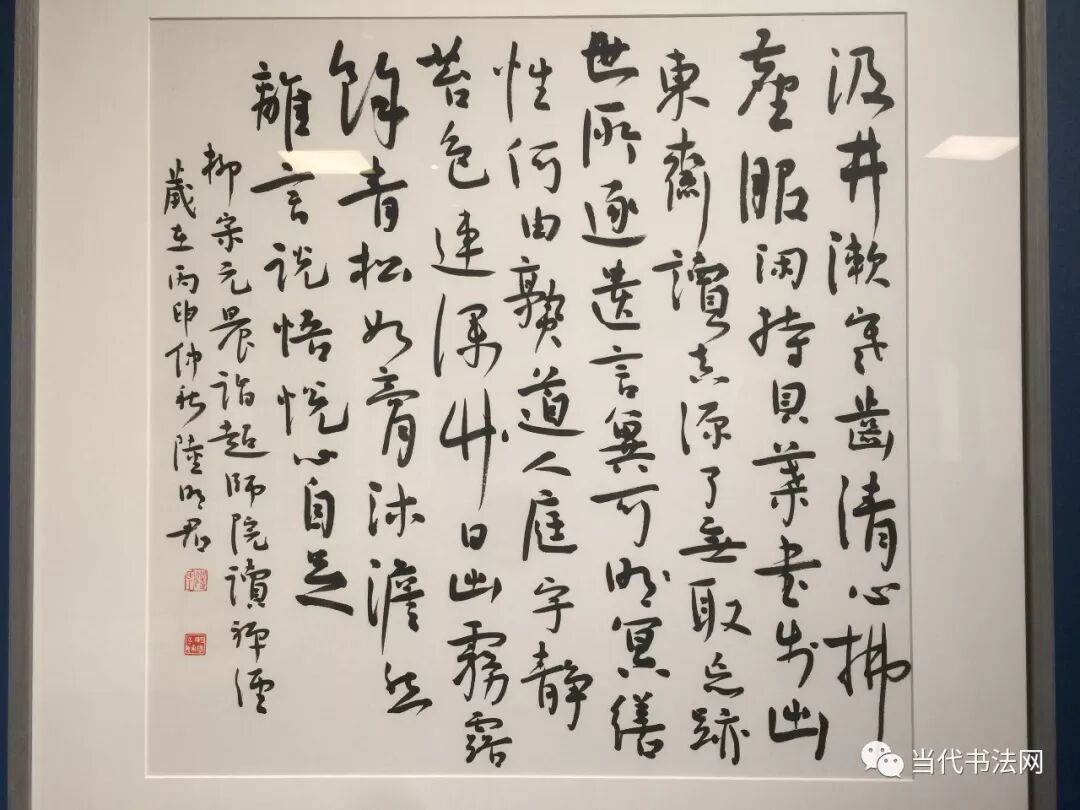 汲井漱寒齒清心拂
塵服閑持貝葉書步出
東齋讀真源了無取妄跡
世所逐遺言冀可明冥繕
性何由熟道人庭宇靜
苔色連深竹日出霧露
餘青松如膏沐澹然
離言說悟悅心自足
柳宗元晨詣超師院讀禪經
歲在丙申仲秋陸明君
当代书法网